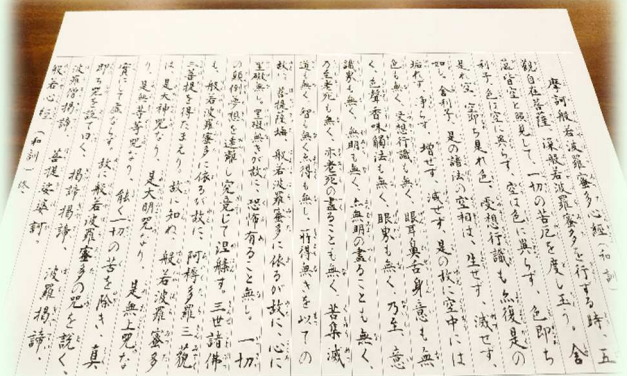 摩訶般若波羅蜜多心経（和訓）
観自在菩薩、深般若波羅蜜多を行ずる時、五
蘊皆空と照見して、一切の苦厄を度し玉う。舎
利子、色は空に異らず、空は色に異らず。色即ち
是れ空、空即ち是れ色。受想行識も亦復是の
如し。舎利子、是の諸法の空相は、生せず、滅せず、
垢れず、浄らず、増せず、減せず。是の故に空中には
色も無く、受想行識も無く、眼耳鼻舌身意も無
く、色聲香味觸法も無く、眼界も無く、乃至、意
識界も無く、無明も無く、亦無明の盡ることも無く、
乃至老死も無く、亦老死の盡ることも無く、苦集滅
道も無く、智も無く亦得も無し。所得無きを以ての
故に、菩提薩埵、般若波羅蜜多に依るが故に、心に
罣礙無し。罣礙無きが故に、恐怖有ること無し。一切
の顛倒夢想を遠離し究竟して涅槃す。三世諸佛
も、般若波羅蜜多に依るが故に、阿耨多羅三藐
三菩提を得たまえり。故に知ぬ、般若波羅蜜多
は是大神咒なり、是大明咒なり、是無上咒な
り、是無等等咒なり。能く一切の苦を除き、真
實にして虚ならず。故に般若波羅蜜多の咒を説く、
即ち咒を説て曰く、揭諦 揭諦 波羅揭諦
波羅僧揭諦 菩提娑婆訶
般若心経（和訓）終